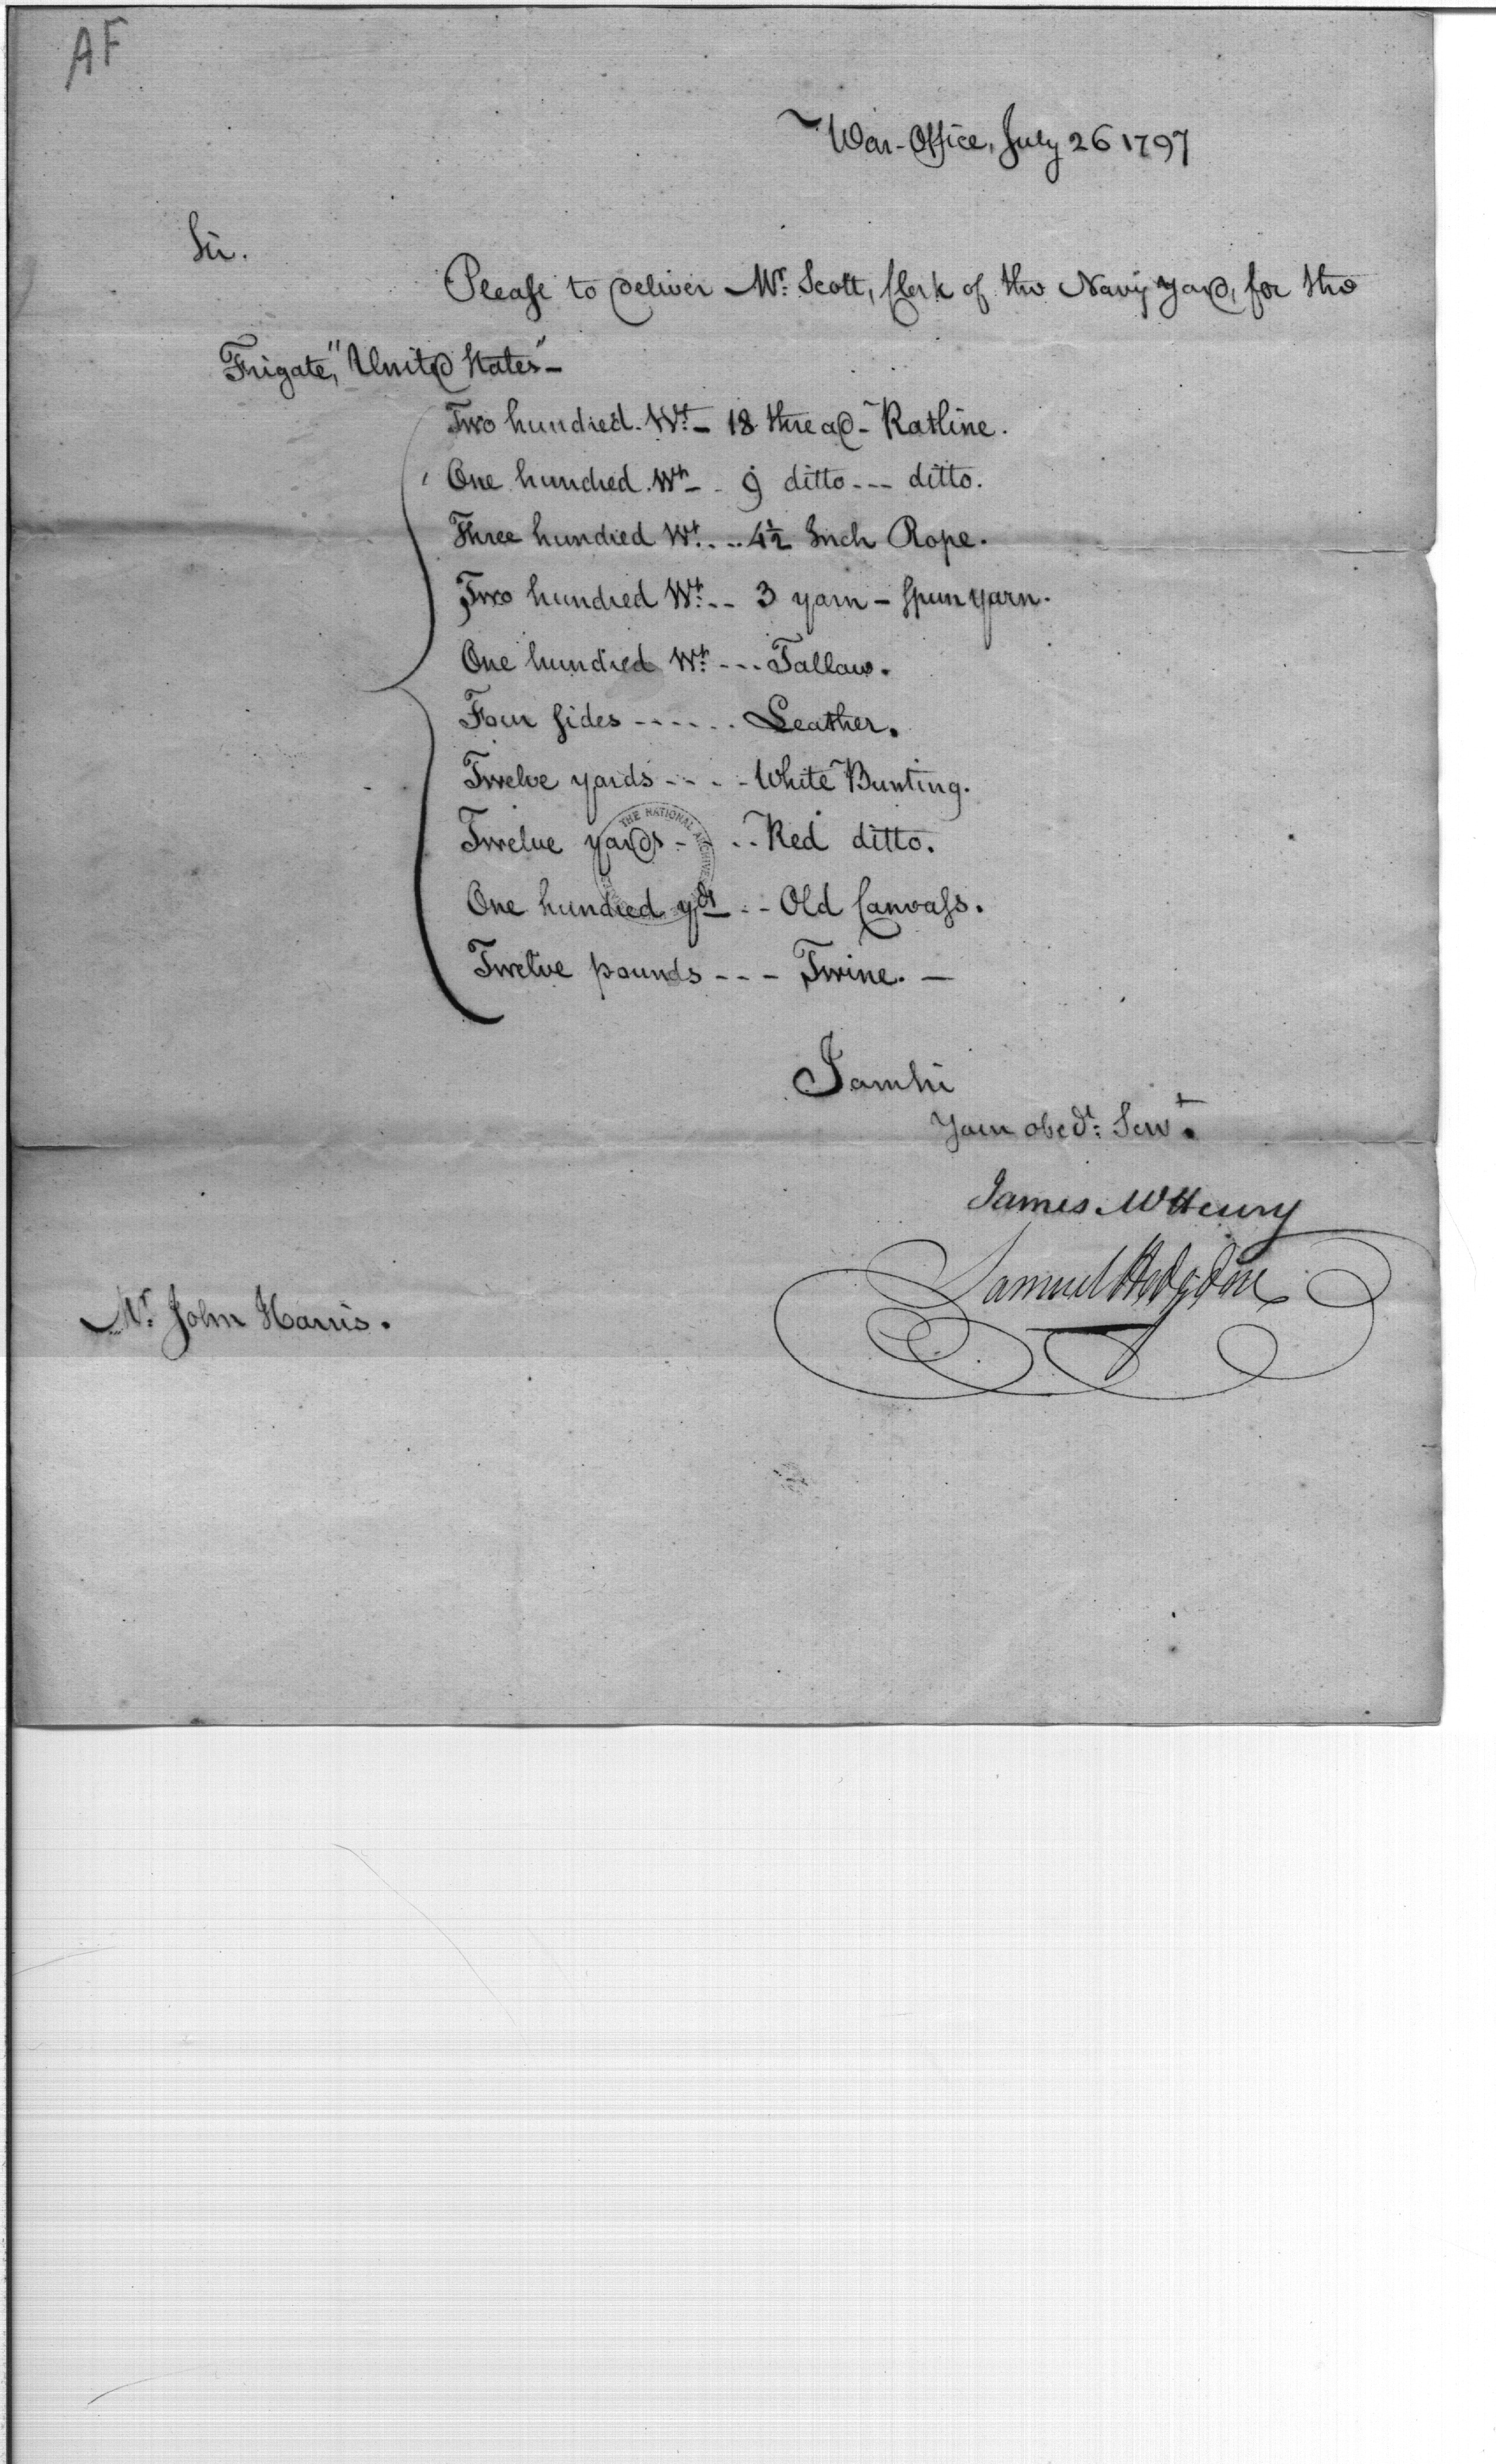 AF
War-Office, July 26 1797
Sir.
Please to deliver Mr. Scott, Clerk of the Navy Yard, for the
Frigate, "United States" -
Two hundred. Wt. - 18 thread - Ratline.
One hundred. Wt. - - 9 ditto --- ditto.
Three hundred Wt. . -- 4½ Inch Rope.
Two hundred Wt. -- 3 yarn - Spun yarn.
One hundred Wt. --- Tallow.
Four sides ------ Leather.
Twelve yards - - - - White Bunting.
Twelve yards - - - Red ditto.
One hundred yds - - Old Canvass.
Twelve pounds --- Twine. -
I am Sir
Your obedt. Servt.
James McHenry
Samuel Hodgdon
Mr. John Harris.
THE NATIONAL ARCHIVES